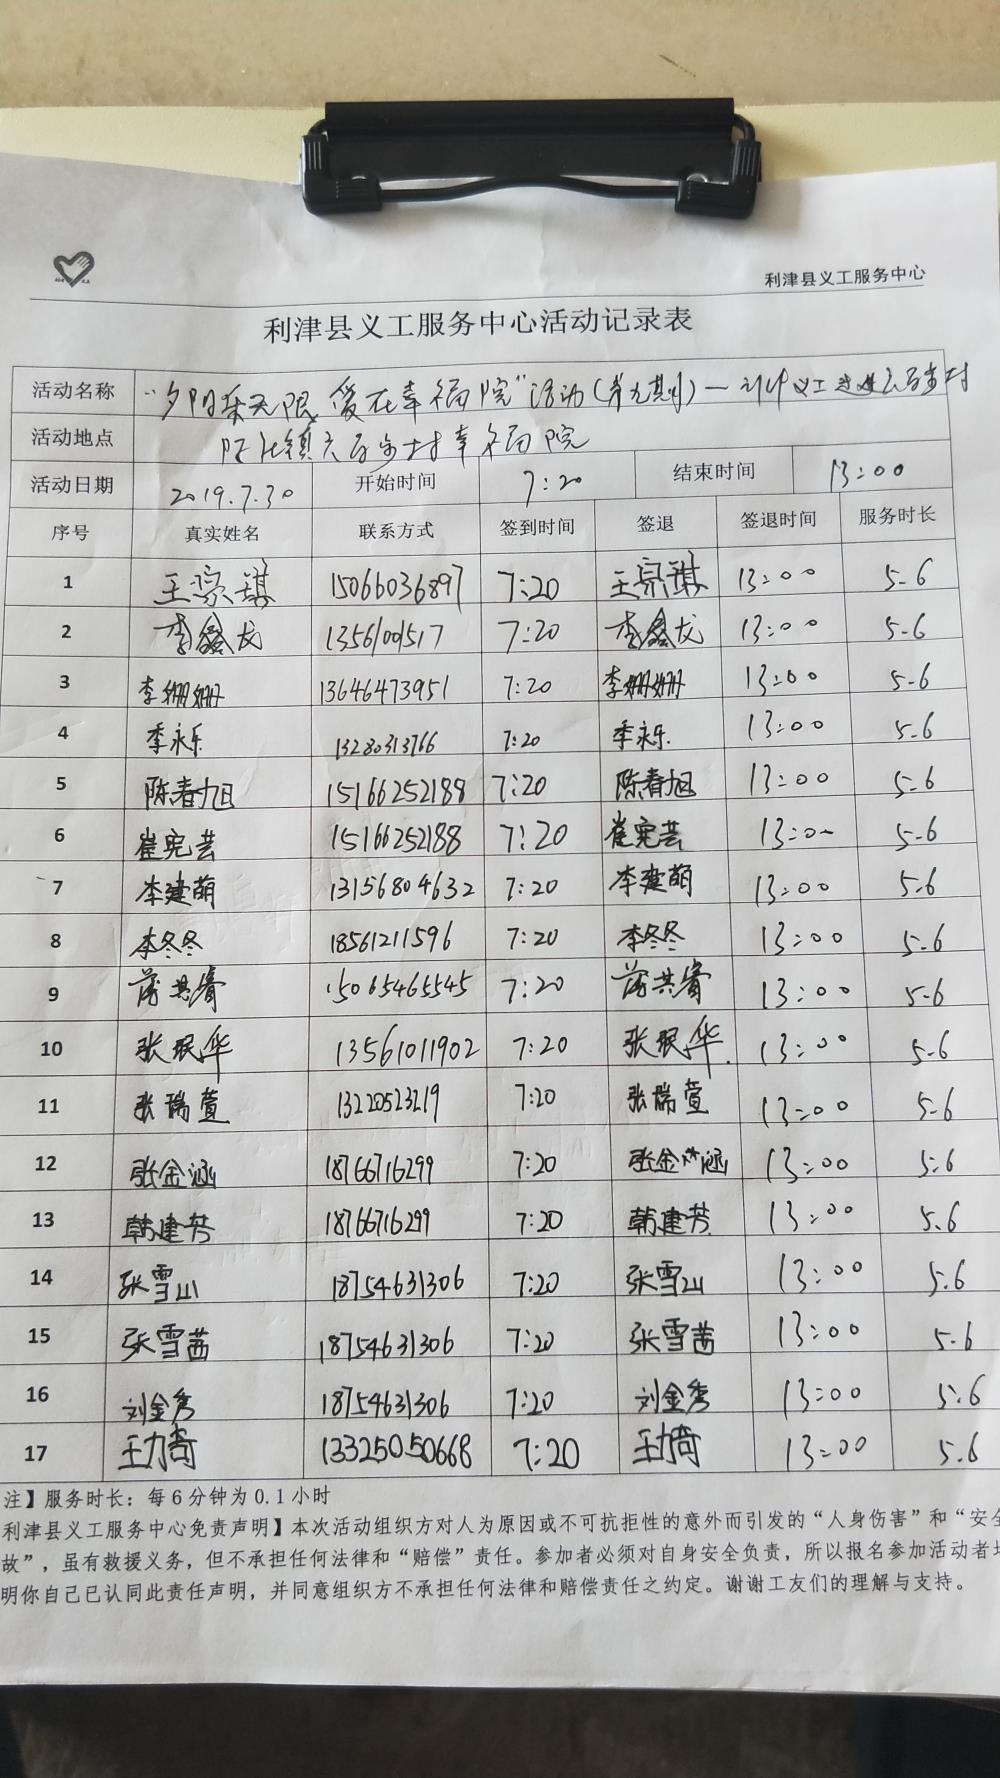 利津县义工服务中心
利津县义工服务中心活动记录表
活动名称 “夕阳乐无限 爱在幸福院”活动(第九期)—利津义工走进
活动地点 陈庄镇 村幸福院
活动日期 2019.7.30 开始时间 7:20 结束时间 13:00
序号 真实姓名 联系方式 签到时间 签退 签退时间 服务时长
1 王宗琪 15066036897 7:20 王宗琪 13:00 5.6
2 李鑫龙 13561001517 7:20 李鑫龙 13:00 5.6
3 李姗姗 13646473951 7:20 李姗姗 13:00 5.6
4 季永乐 13280313766 7:20 季永乐 13:00 5.6
5 陈春旭 15166252188 7:20 陈春旭 13:00 5.6
6 崔宪芸 15166252188 7:20 崔宪芸 13:00 5.6
7 李建萌 13156804632 7:20 李建萌 13:00 5.6
8 李冬冬 18561211596 7:20 李冬冬 13:00 5.6
9 15065465545 7:20 13:00 5.6
10 张珉华 13561011902 7:20 张珉华 13:00 5.6
11 张瑞萱 13220523219 7:20 张瑞萱 13:00 5.6
12 张金涵 18766716299 7:20 张金涵 13:00 5.6
13 韩建芳 18766716299 7:20 韩建芳 13:00 5.6
14 张雪山 18754631306 7:20 张雪山 13:00 5.6
15 张雪茜 18754631306 7:20 张雪茜 13:00 5.6
16 刘金秀 18754631306 7:20 刘金秀 13:00 5.6
17 王力奇 13325050668 7:20 王力奇 13:00 5.6
注】服务时长：每6分钟为0.1小时
利津县义工服务中心免责声明】本次活动组织方对人为原因或不可抗拒性的意外而引发的“人身伤害”和“安全
故”，虽有救援义务，但不承担任何法律和“赔偿”责任。参加者必须对自身安全负责，所以报名参加活动者
明你自己已认同此责任声明，并同意组织方不承担任何法律和赔偿责任之约定。谢谢工友们的理解与支持。